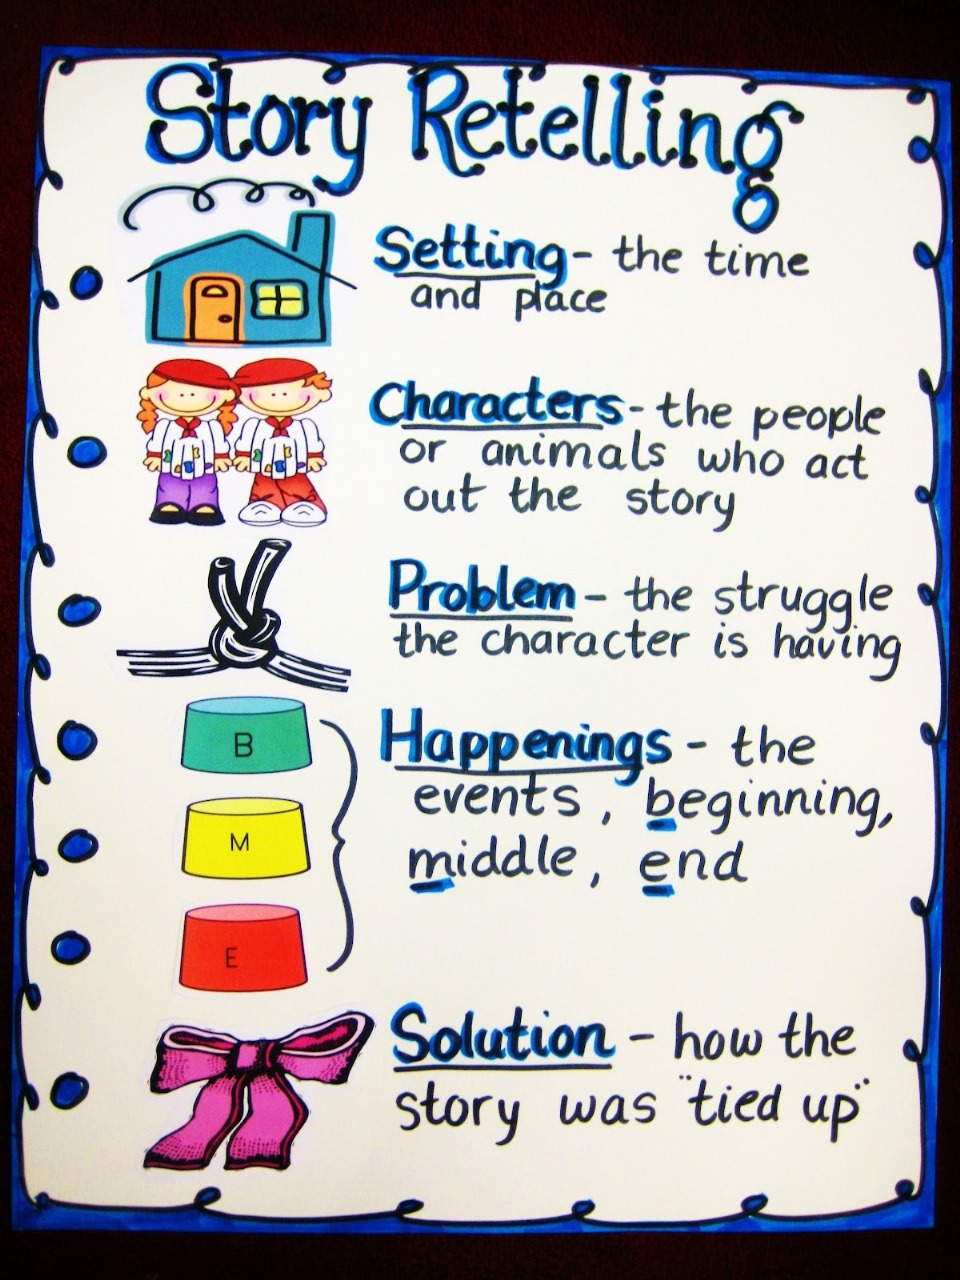 Story Retelling
Setting - the time
and place
Characters - the people
or animals who act
out the story
Problem - the struggle
the character is having
B
Happenings - the
events, beginning,
M
middle, end
E
Solution - how the
story was "tied up"